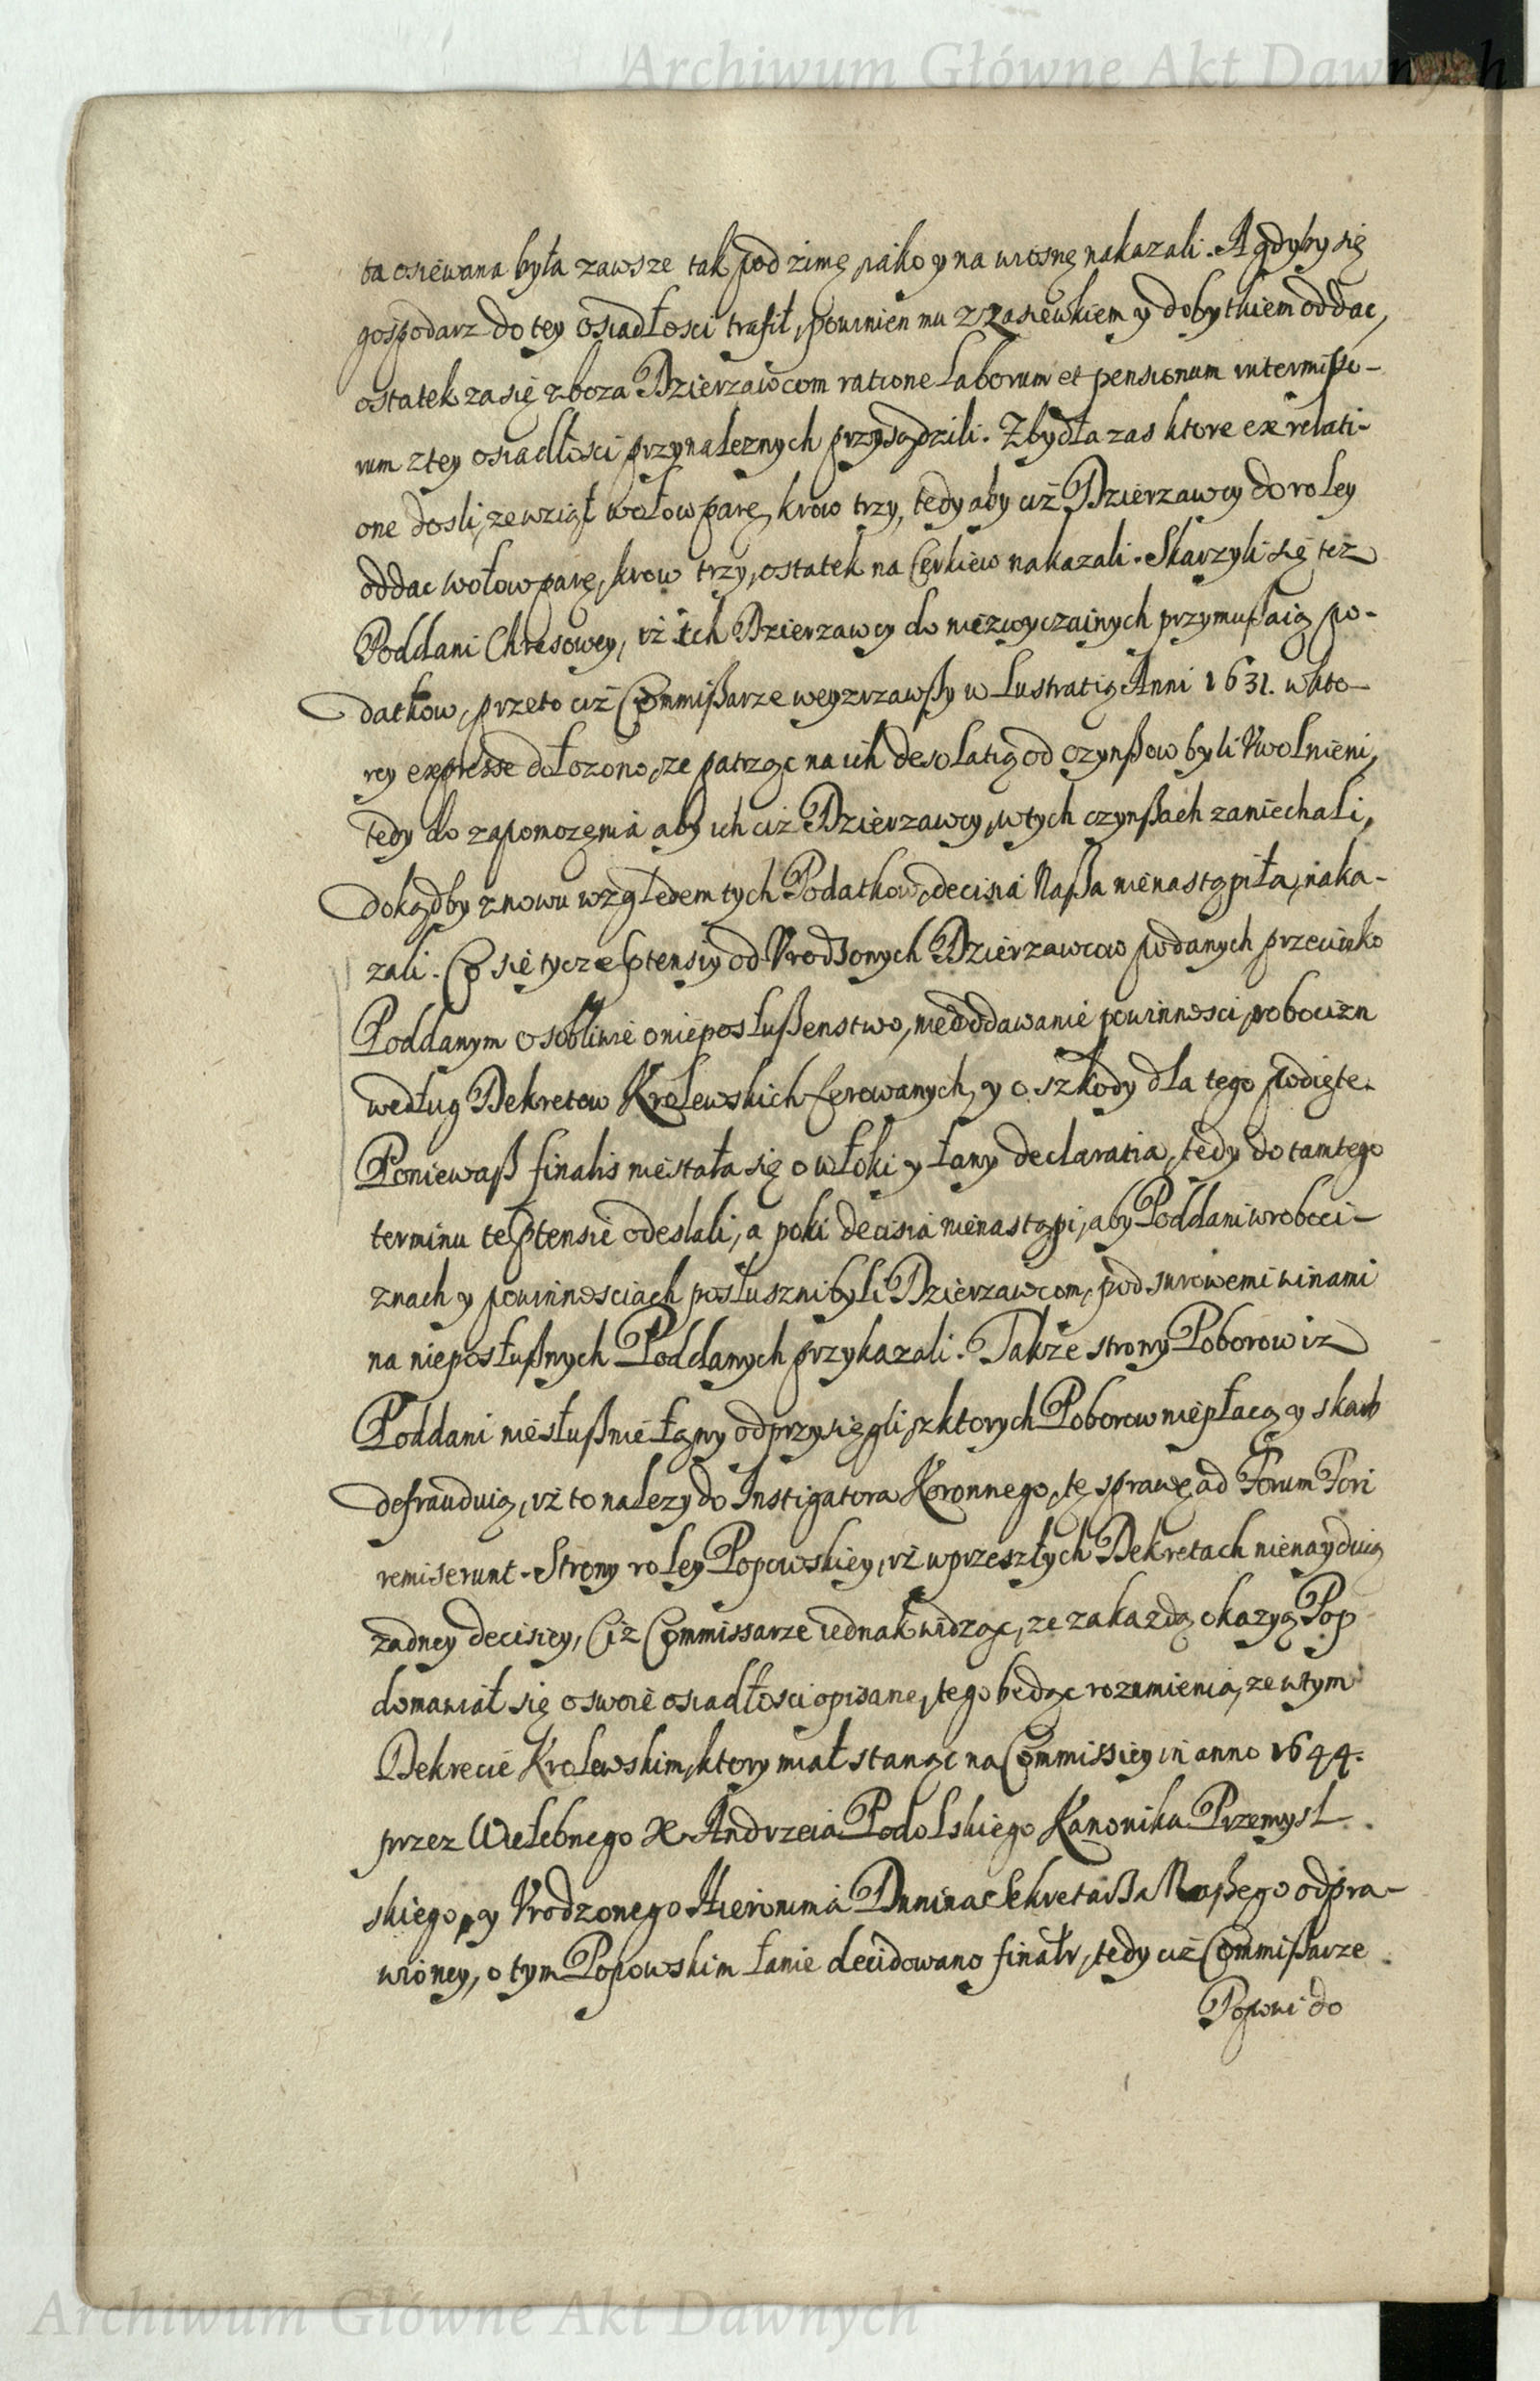 Archiwum Główne Akt Dawnych
ta osiewana była zawsze tak pod zimę, iako y na wiosnę nakazali. A gdyby się
gospodarz do tey osiadłosci trafił, powinien mu z zasiewkiem y dobytkiem oddac,
ostatek zasię zboza Dzierzawcom ratione laborum et pensionum intermisso-
rum z tey osiadłosci przynaleznych przysądzili. Z bydła zas ktore ex relati-
one dosli, ze wziął wołow parę, krow trzy, tedy aby ciż Dzierzawcy do roley
oddac wołow parę, krow trzy, ostatek na Cerkiew nakazali. Skarzyli się tez
Poddani Chrasowcy, iż ich Dzierzawcy do niezwyczainych przymußaią po-
datkow, przeto ciż Commißarze weyzrzawßy w Lustratią Anni 1631. w kto-
rey expresse dołozono, ze patrząc na ich desolatią od czynßow byli Uwolnieni,
tedy do zapomozenia aby ich ciż Dzierzawcy, w tych czynßach zaniechali,
dokądby znowu względem tych Podatkow, decisia Naßa nienastąpiła, naka-
zali. Co się tycze ptensiy od Urodzonych Dzierzawcow podanych przeciwko
Poddanym osobliwie o nieposłußenstwo, nieoddawanie powinnosci, robocizn
według Dekretow Krolewskich ferowanych, y o szkody dla tego podięte.
Poniewaß finalis niestała się o włoki y łany declaratia, tedy do tamtego
terminu te ptensie odeslali, a poki decisia nienastąpi, aby Poddani w roboci-
znach y powinnosciach posłuszni byli Dzierzawcom, pod surowemi winami
na nieposłußnych Poddanych przykazali. Takze strony Poborow iz
Poddani niesłußnie łany odprzysięgli, z ktorych Poborow niepłacą y skarb
defrauduią, iż to nalezy do Instigatora Koronnego, tę sprawę ad Forum Fori
remiserunt. Strony roley Popowskiey, iż w przeszłych Dekretach nienayduią
zadney decisiey, Ciz Commissarze iednak widząc, ze za kazdą okazyą Pop
domawiał się o swoie osiadłosci opisane, tego będąc rozumienia, ze w tym
Dekrecie Krolewskim, ktory miał stanąc na Commissiey in anno 1644.
przez Wielebnego X Andrzeia Podolskiego Kanonika Przemysl-
skiego, y Urodzonego Hieronima Dunina Sekretarßa Naßego odpra-
wioney, o tym Popowskim łanie decidowano finalr, tedy ciż Commißarze
Popowi do
Archiwum Główne Akt Dawnych